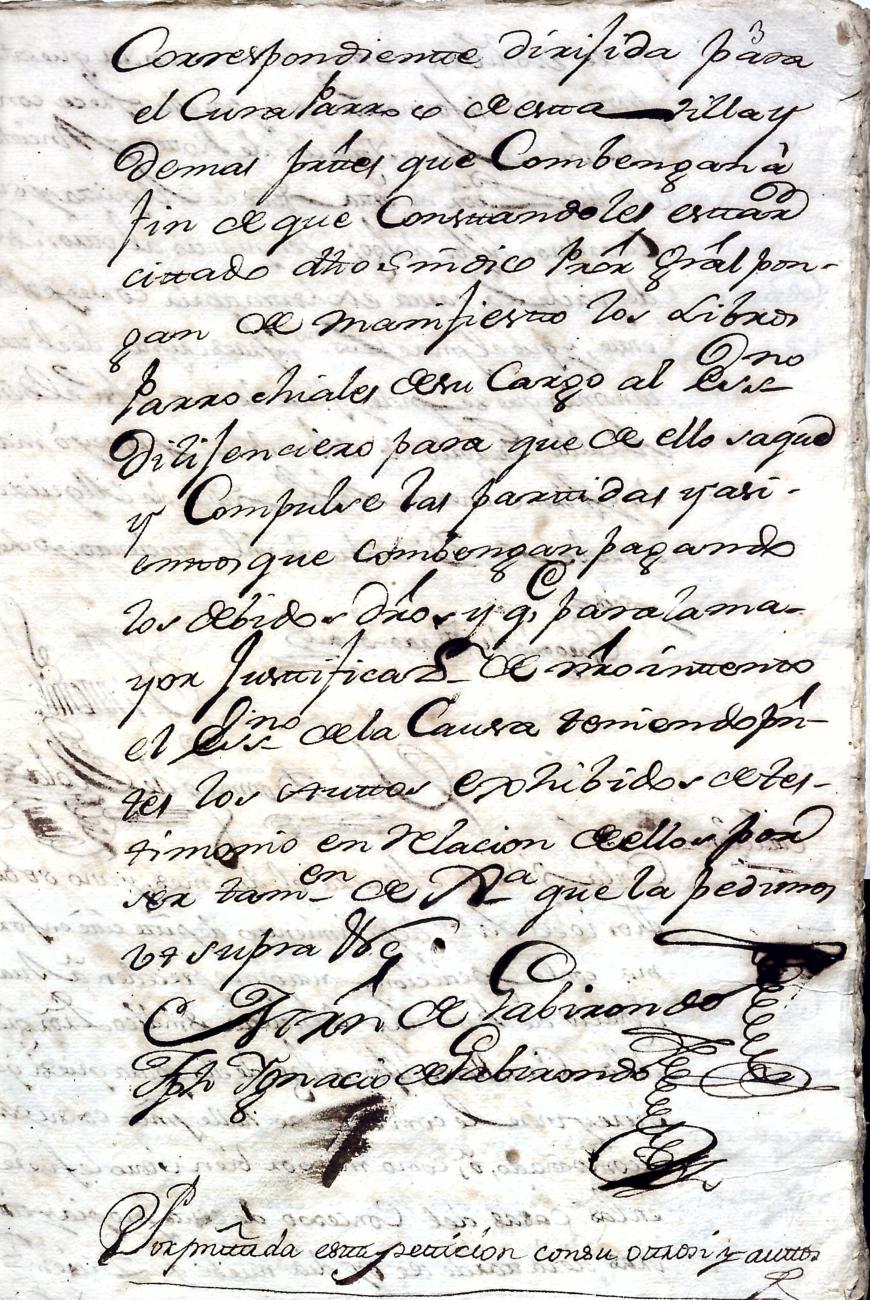 3
Correspondiente dirijida para
el Cura Parroco de esta villa y
demas prttes que Combengan à
fin de que Consttandoles esttar
cittado dho Sindico Prõr grãl pon-
gan de manifiestto los Libros
Parrochiales de su Cargo al Essno
Dilijenciero para que de ello saque
y Compulse las parttidas y asi-
enttos que combengan pagando
los debidos drõs y q, para la ma-
yor Justtificasn de nrõ inttentto
el Essno de la Causa teniendo pñ-
tes los auttos exhibidos de tes-
timonio en relacion de ellos por
ser tamen de Jta que la pedimos
ut supra &c
Fran de Gabirondo
Jph Ygnacio de Gabirondo
Por pnttada estta petticion con su ottrosi y auttos